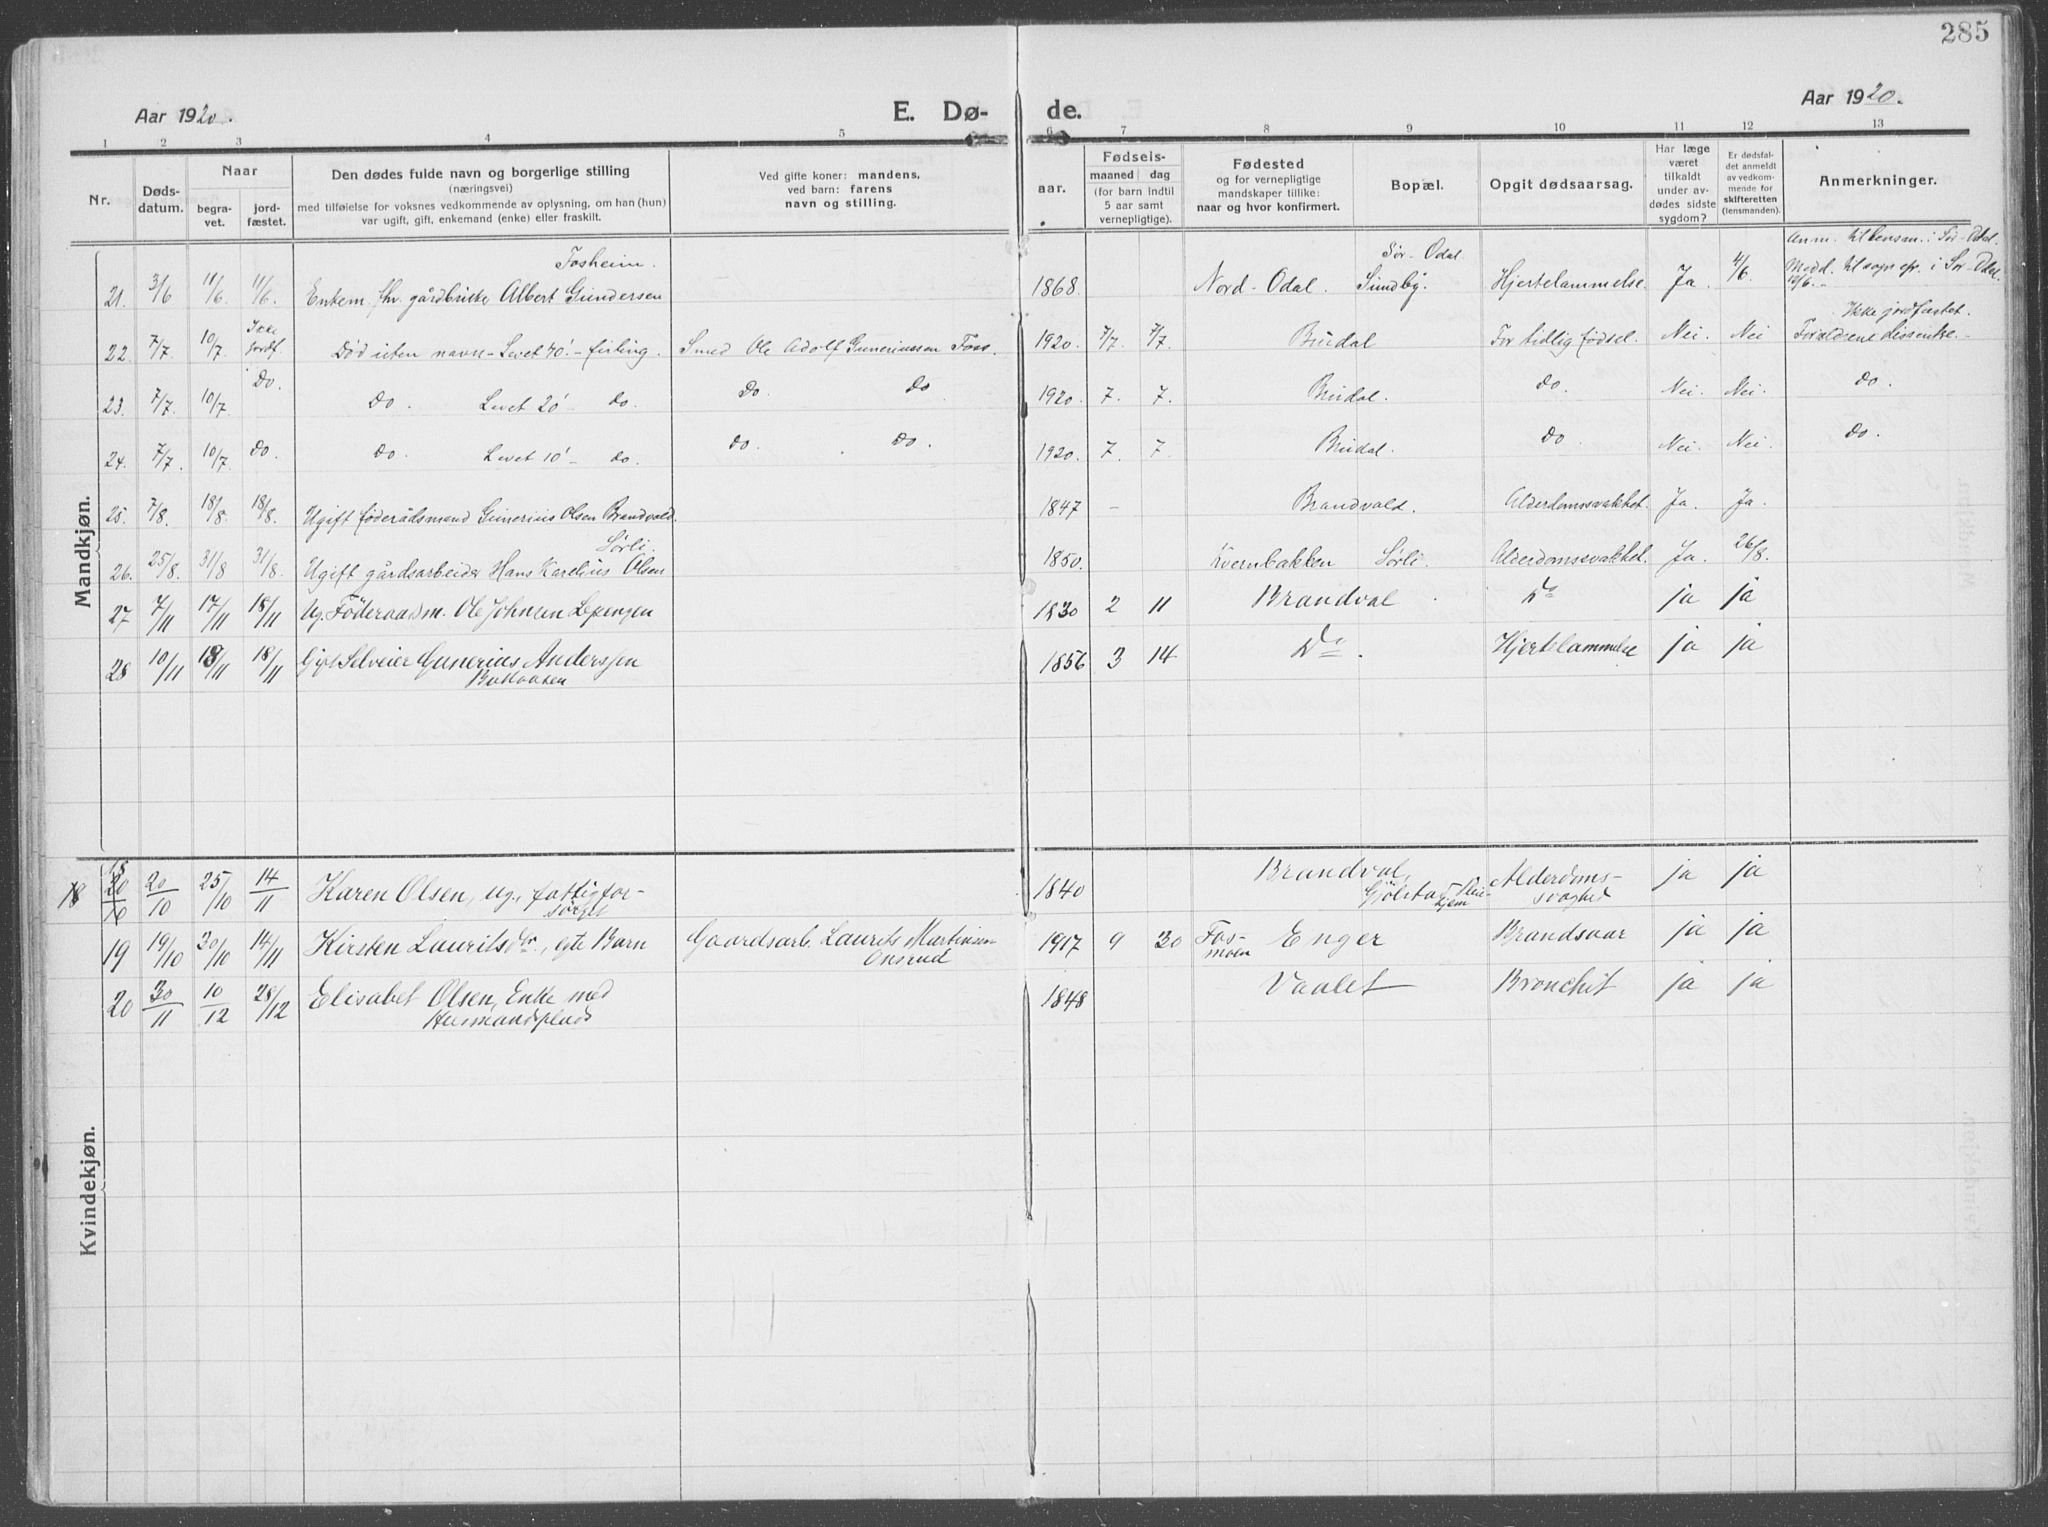 285
Aar 1920. E. Dø- de. Aar 1920.
1 2 3 4 5 6 7 8 9 10 11 12 13
Nr. Døds-datum. Naar begra-vet. jord-fæstet. Den dødes fulde navn og borgerlige stilling (næringsvei) med tilføielse for voksnes vedkommende av oplysning, om han (hun) var ugift, gift, enkemand (enke) eller fraskilt. Ved gifte koner: mandens, ved barn: farens navn og stilling. aar. Fødsels- maaned dag (for barn indtil 5 aar samt vernepligtige). Fødested og for vernepligtige mandskaper tillike: naar og hvor konfirmert. Bopæl. Opgit dødsaarsag. Har læge været tilkaldt under av-dødes sidste sygdom? Er dødsfal-det anmeldt av vedkom-mende for skifteretten (lensmanden). Anmerkninger.
Mandkjøn.
Fosheim. Sør-Odal Anm. til lensm. i Sør-Odal.
21. 3/6 11/6. 11/6. Enkem. fhv. gårdbruker Albert Gundersen 1868. Nord-Odal. Sundby. Hjertelammelse. Ja. 4/6. Medd. til sogнepr. i Sør-Odal. 12/6.
22. 7/7. 10/7. Ikke jordf. Død uten navn - Levet 40'. - firling. Smed Ole Adolf Gunerius​sen Foss. 1920. 7/7. 7/7. Brudal For tidlig fødsel. Nei. Nei Ikke jordfæstet. Forældrene dissentere.
23. 7/7. 10/7. Do. Do. Levet 20' - do. Do. Do 1920. 7. 7. Brudal. Do. Nei. Nei. Do.
24. 7/7. 10/7. Do. Do. Levet 10' - do. Do. Do. 1920. 7. 7. Brudal. Do Nei. Nei. Do.
25. 7/8. 18/8. 18/8. Ugift føderådsmand Gunerius Olsen Brandvald. 1847 - Brandvald. Alderdomssvakhet. Ja. Ja.
Sørli.
26. 25/8. 31/8 31/8. Ugift gårdsarbeider Hans Karelius Olsen 1850. Kvernbakken Sørli. Alderdomssvakhet. Ja. 26/8.
27 7/11 17/11 18/11 Ug. Föderaadsm. Ole Johnsen Lepengen 1830 2 11 Brandval Do ja ja
28 10/11 18/11 18/11 Gift Selveier Gunerius Anderssen 1856 3 14 Do. Hjertelammelse ja ja
Bakaasen
Kvindekjøn.
18 20/10 20/10 25/10 14/11 Karen Olsen, ug., fattigfor- 1840 Brandval, Alderdoms- ja ja
sørget Gjölstad Pleie-hjem svaghed
19 19/10 30/10 14/11 Kirsten Lauritsdr., gte Barn Gaardsarb. Laurits Martinsen 1917 9 30 Fos-moen Enger Brandsaar ja ja
Onsrud
20 30/11 10/12 28/12 Elisabet Olsen, Enke med 1848 Vaalet Bronchit ja ja
Husmandsplads